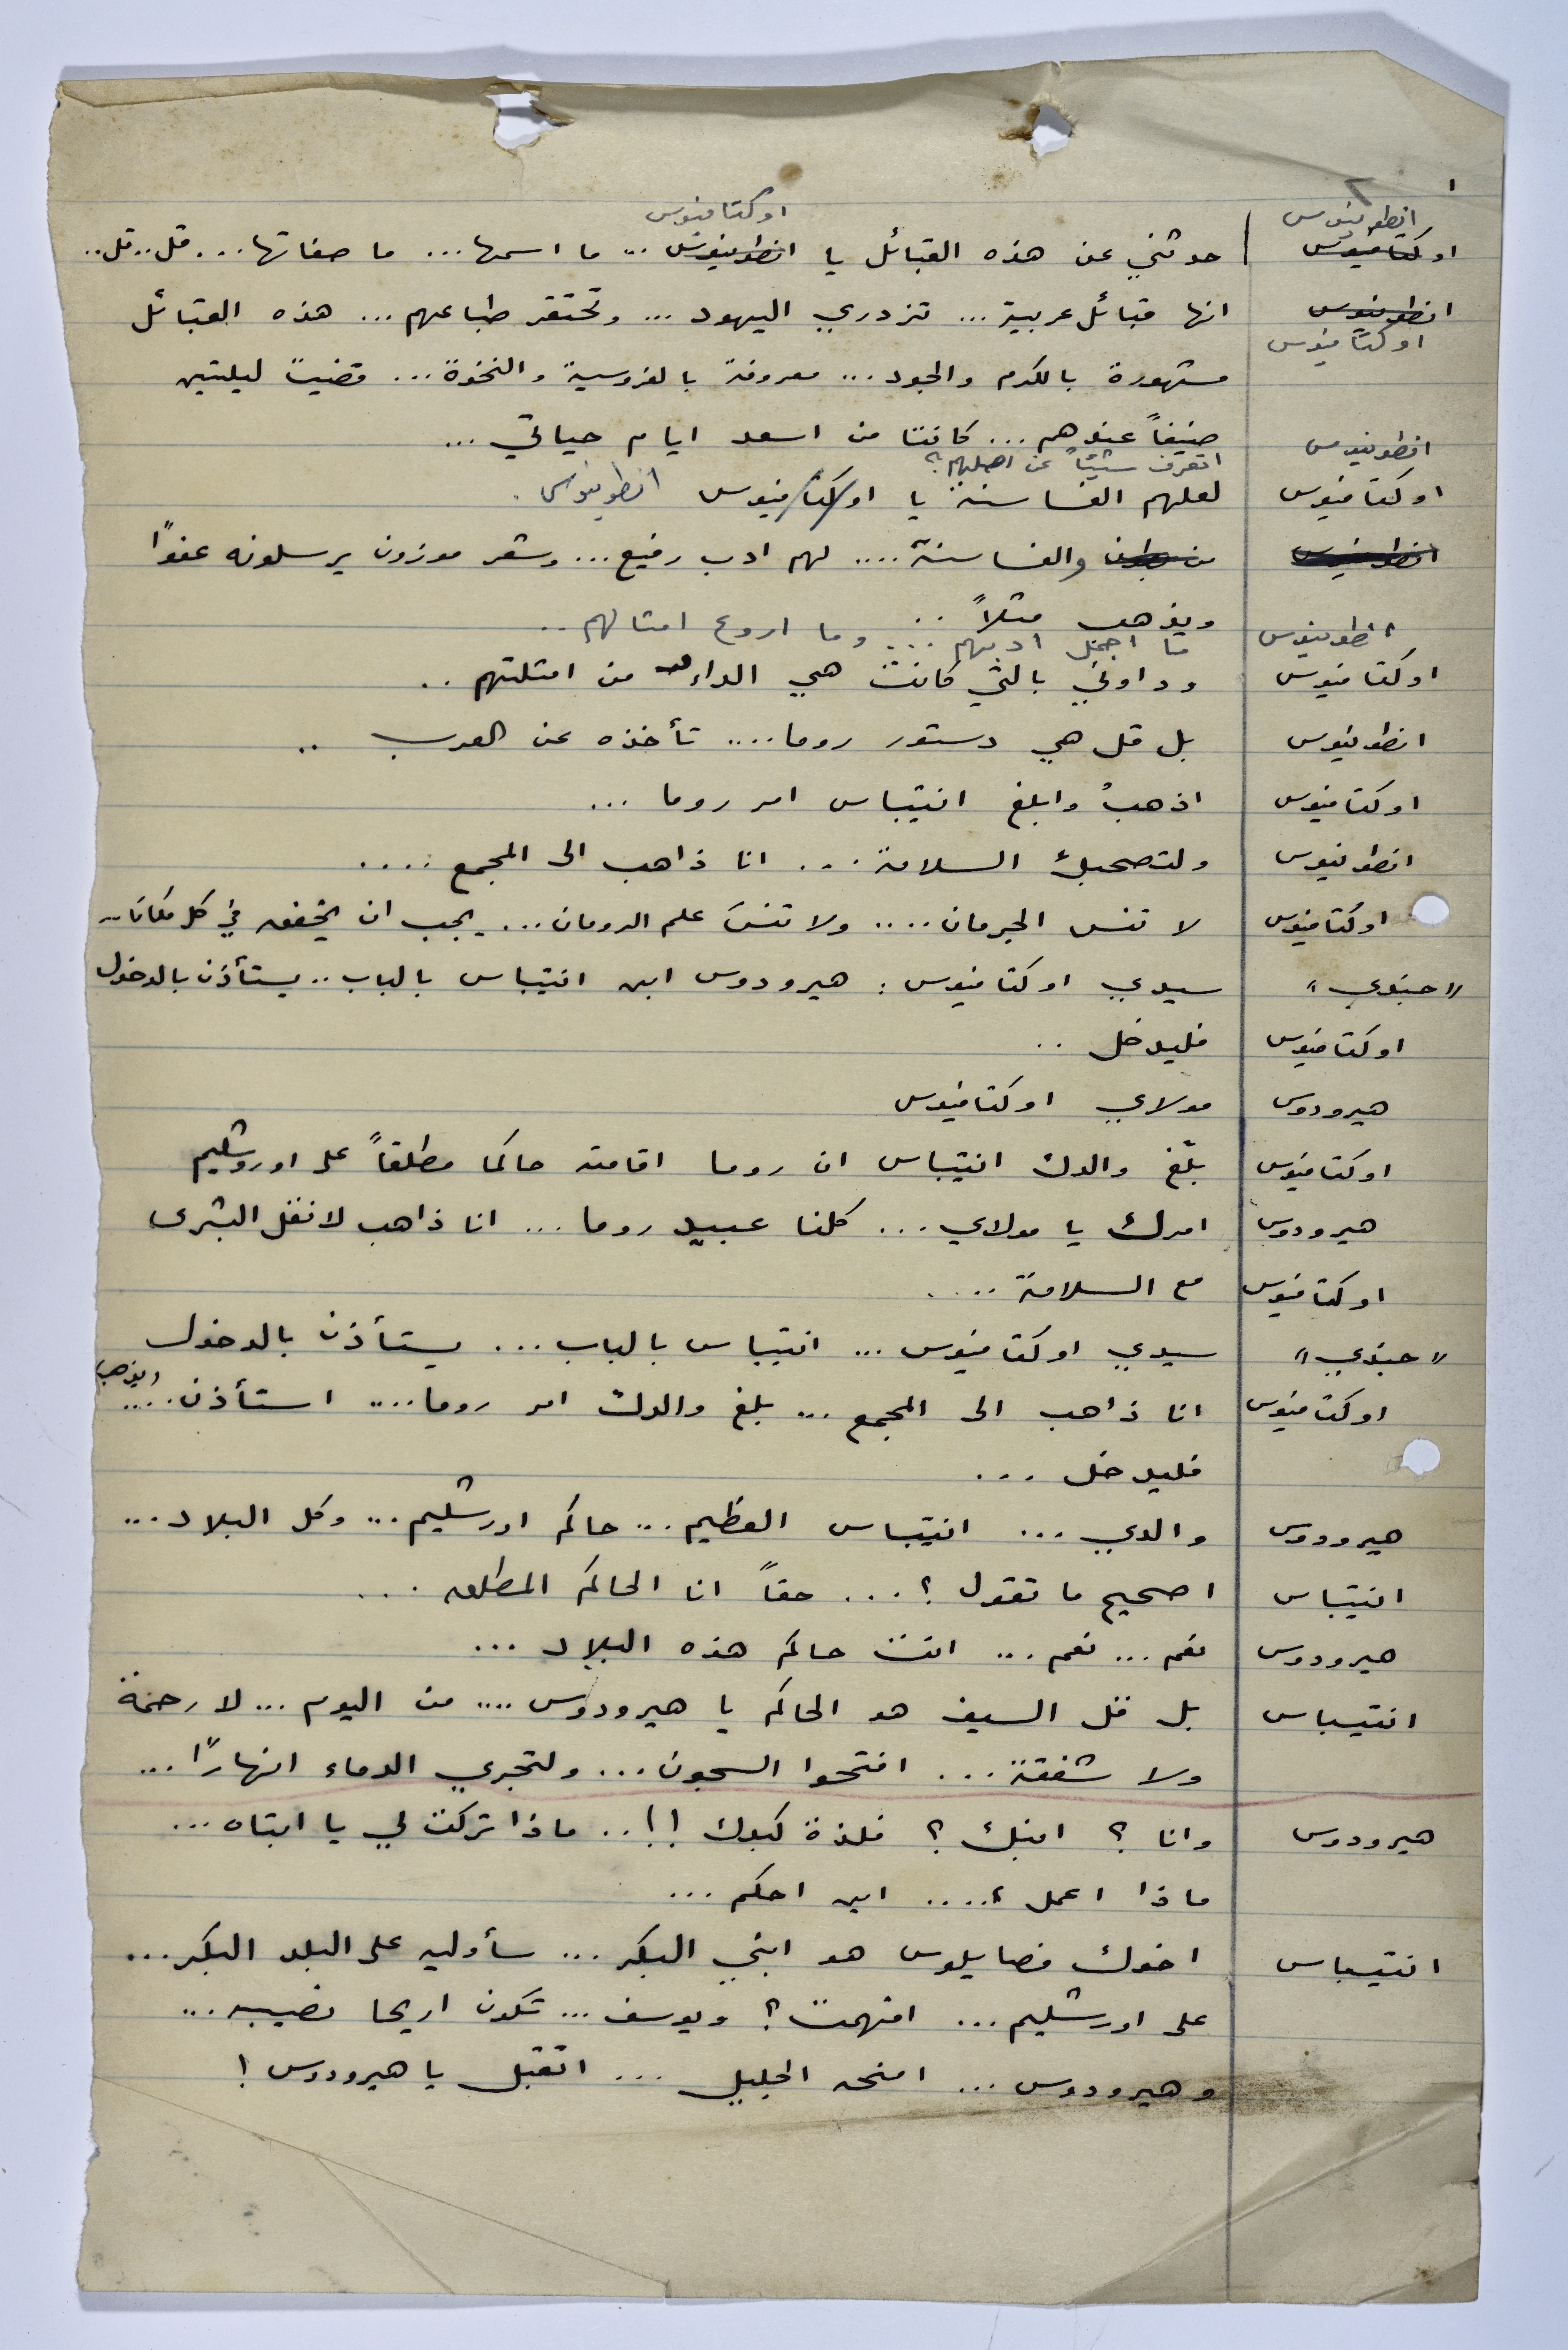 ١ ٢
انطونيوس اوكتافيوس
اوكتافيوس حدثني عن هذه القبائل يا انطونيوس .. ما اسمها ... ما صفاتها ... قل .. قل ..
انطونيوس انها قبائل عربية ... تزدري اليهود ... وتحتقر طباعهم ... هذه القبائل
اوكتافيوس
مشهورة بالكرم والجود ... معروفة بالفروسية والنخوة ... قضيت ليلتين
ضيفاً عندهم ... كانتا من اسعد ايام حياتي ...
انطونيوس اتعرف شيئاً عن اصلهم؟
اوكتافيوس لعلهم الغساسنة يا اوكتافيوس انطونيوس .
انطونيوس من والغساسنة .... لهم ادب رفيع ... وشعر موزون يرسلونه عفوًا
ويذهب مثلاً ..
انطونيوس ما اجمل ادبهم ... وما اروع امثالهم ..
اوكتافيوس وداوني بالتي كانت هي الداء من امثلتهم ..
انطونيوس بل قل هي دستور روما .... تأخذه عن العرب ..
اوكتافيوس اذهبْ وابلغ انتيباس امر روما ...
انطونيوس ولتصحبك السلامة ... انا ذاهب الى المجمع ....
اوكتافيوس لا تنس الجرمان .... ولا تنسَ علم الرومان ... يجب ان يخفق في كل مكان ..
"جندي" سيدي اوكتافيوس : هيرودوس ابن انتيباس بالباب .. يستأذن بالدخول
اوكتافيوس فليدخل ..
هيرودوس مولاي اوكتافيوس
اوكتافيوس بلّغ والدك انتيباس ان روما اقامته حاكما مطلقاً على اوروشليم
هيرودوس امرك يا مولاي ... كلنا عبيد روما ... انا ذاهب لانقل البشرى
اوكتافيوس مع السلامة ....
"جندي" سيدي اوكتافيوس ... انتيباس بالباب ... يستأذن بالدخول
اوكتافيوس انا ذاهب الى المجمع ... بلغ والدك امر روما .... استأذن .... ويذهب
فليدخل ...
هيرودوس والدي ... انتيباس العظيم ... حاكم اورشليم ... وكل البلاد ...
انتيباس اصحيح ما تقول ؟ ... حقاً انا الحاكم المطلق ...
هيرودوس نعم ... نعم ... انت حاكم هذه البلاد ...
انتيباس بل قل السيف هو الحاكم يا هيرودوس .... من اليوم ... لا رحمة
ولا شفقة ... افتحوا السجون ... ولتجري الدماء انهارًا ...
هيرودوس وانا ؟ ابنك ؟ فلذة كبدك !! .. ماذا تركت لي يا ابتاه ...
ماذا اعمل ؟ .... اين احكم ...
انتيباس اخوك فصايلوس هو ابني البكر ... سأوليه على البلد البكر ...
على اورشليم ... افهمت ؟ ويوسف ... تكون اريحا نصيبه ...
وهيرودوس ... امنحه الجليل ... اتقبل يا هيرودوس !